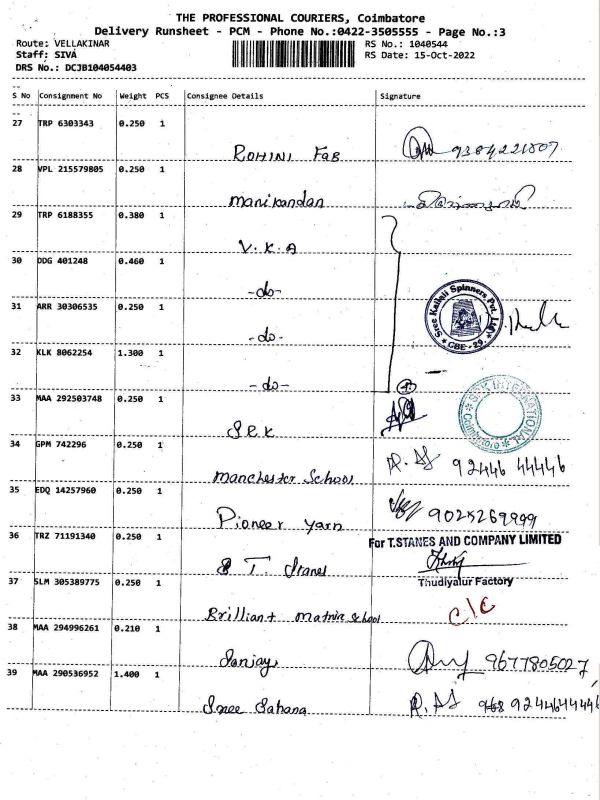 THE PROFESSIONAL COURIERS, Coimbatore
Delivery Runsheet - PCM - Phone No.:0422-3505555 - Page No.:3
Route: VELLAKINAR RS No.: 1040544
Staff: SIVA RS Date: 15-Oct-2022
DRS No.: DCJB104054403
S No Consignment No Weight PCS Consignee Details Signature
27 TRP 6303343 0.250 1
ROHINI FAB 9384221807
28 VPL 215579805 0.250 1
Manikandan
29 TRP 6188355 0.380 1
V.K.A
30 DDG 401248 0.460 1
-do-
31 ARR 30306535 0.250 1
-do-
Sree Kailali Spinners Pvt. Ltd. CBE-29.
32 KLK 8062254 1.300 1
-do-
33 MAA 292503748 0.250 1
S.R.K
SRK INTERNATIONAL Coimbatore
34 GPM 742296 0.250 1
Manchester School R. AS 92446 44446
35 EDQ 14257960 0.250 1
Pioneer yarn 9025269999
36 TRZ 71191340 0.250 1
For T.STANES AND COMPANY LIMITED
T. Stanes
Thudiyalur Factory
37 SLM 305389775 0.250 1
Brilliant matric school c/c
38 MAA 294996261 0.210 1
Sanjay 9677805027
39 MAA 290536952 1.400 1
Sree Sahana R. AS 9244644446